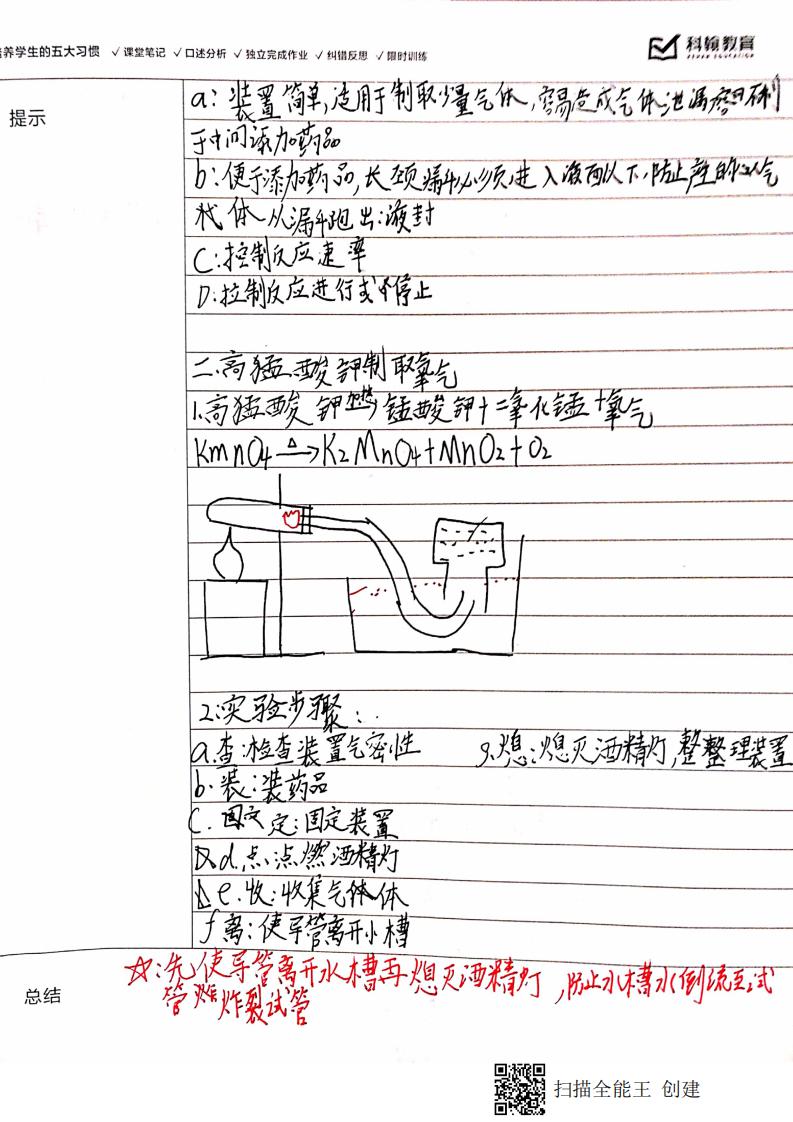 养学生的五大习惯 ✓课堂笔记 ✓口述分析 ✓独立完成作业 ✓纠错反思 ✓限时训练
科翰教育
提示
a:装置简单,适用于制取少量气体,容易造成气体泄漏不利
于中间添加药品
b:便于添加药品,长颈漏斗必须进入液面以下,防止产的气
体从漏斗跑出:液封
C:控制反应速率
D:控制反应进行或停止
二.高锰酸钾制取氧气
1.高锰酸钾加热→锰酸钾+二氧化锰+氧气
KmnO4 △→K2MnO4+MnO2+O2
2.实验步骤:
a.查:检查装置气密性 g.熄:熄灭酒精灯,整整理装置
b.装:装药品
C.定:固定装置
d.点:点燃酒精灯
e.收:收集气体体
f离:使导管离开小槽
总结
☆:先使导管离开水槽再熄灭酒精灯,防止水槽水倒流至试
管炸裂试管
扫描全能王 创建